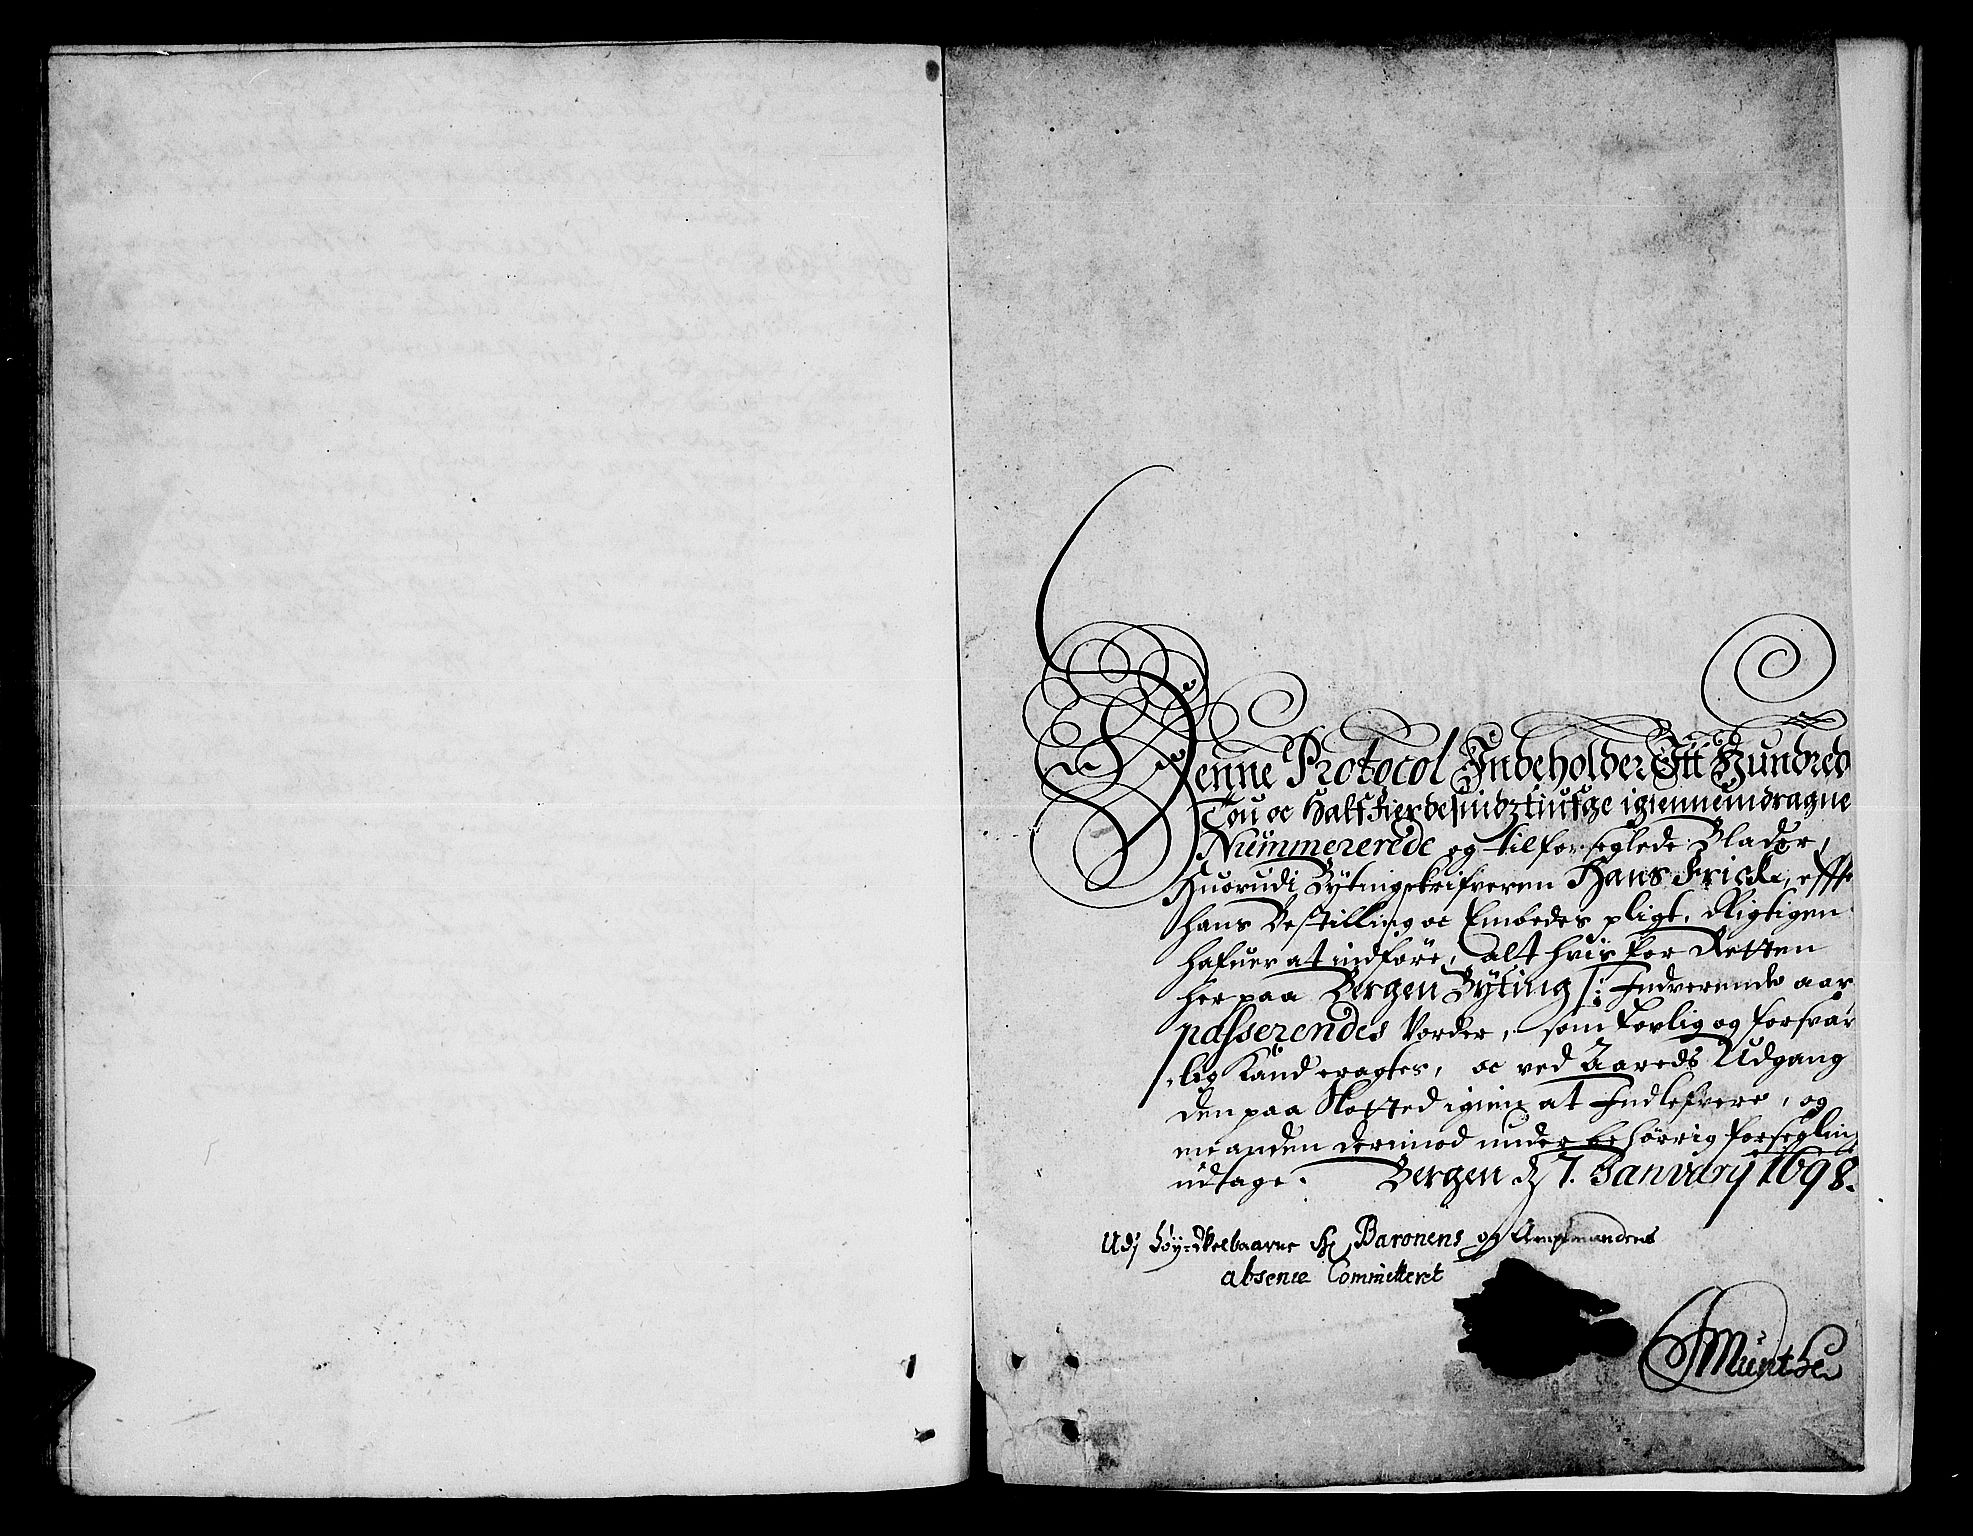 Denne Protocol Indeholder Ett Hundred
Tou oc Halffierdesindztiufge igiennemdragne
Nummererede og tilforseglede Blader,
Huorudi Bytingskrifveren Hans Frick, effter
hans Bestilling oc Embedes pligt, Rigtigen
hafuer at indføre, alt hvis for Retten
her paa Bergen Byting /: Indverende aar
passerendes vorder, som lovlig og forsvar
lig Kand eragtes, oc ved Aareds Udgang
den paa Slotted igien at Indlefvere, og
en anden derimod under behörrig forseglin
udtage. Bergen d 7. January 1698.
Udj Høy-Velbaarne Hr Baronens og Amptmandens
absence Committeret
Munthe